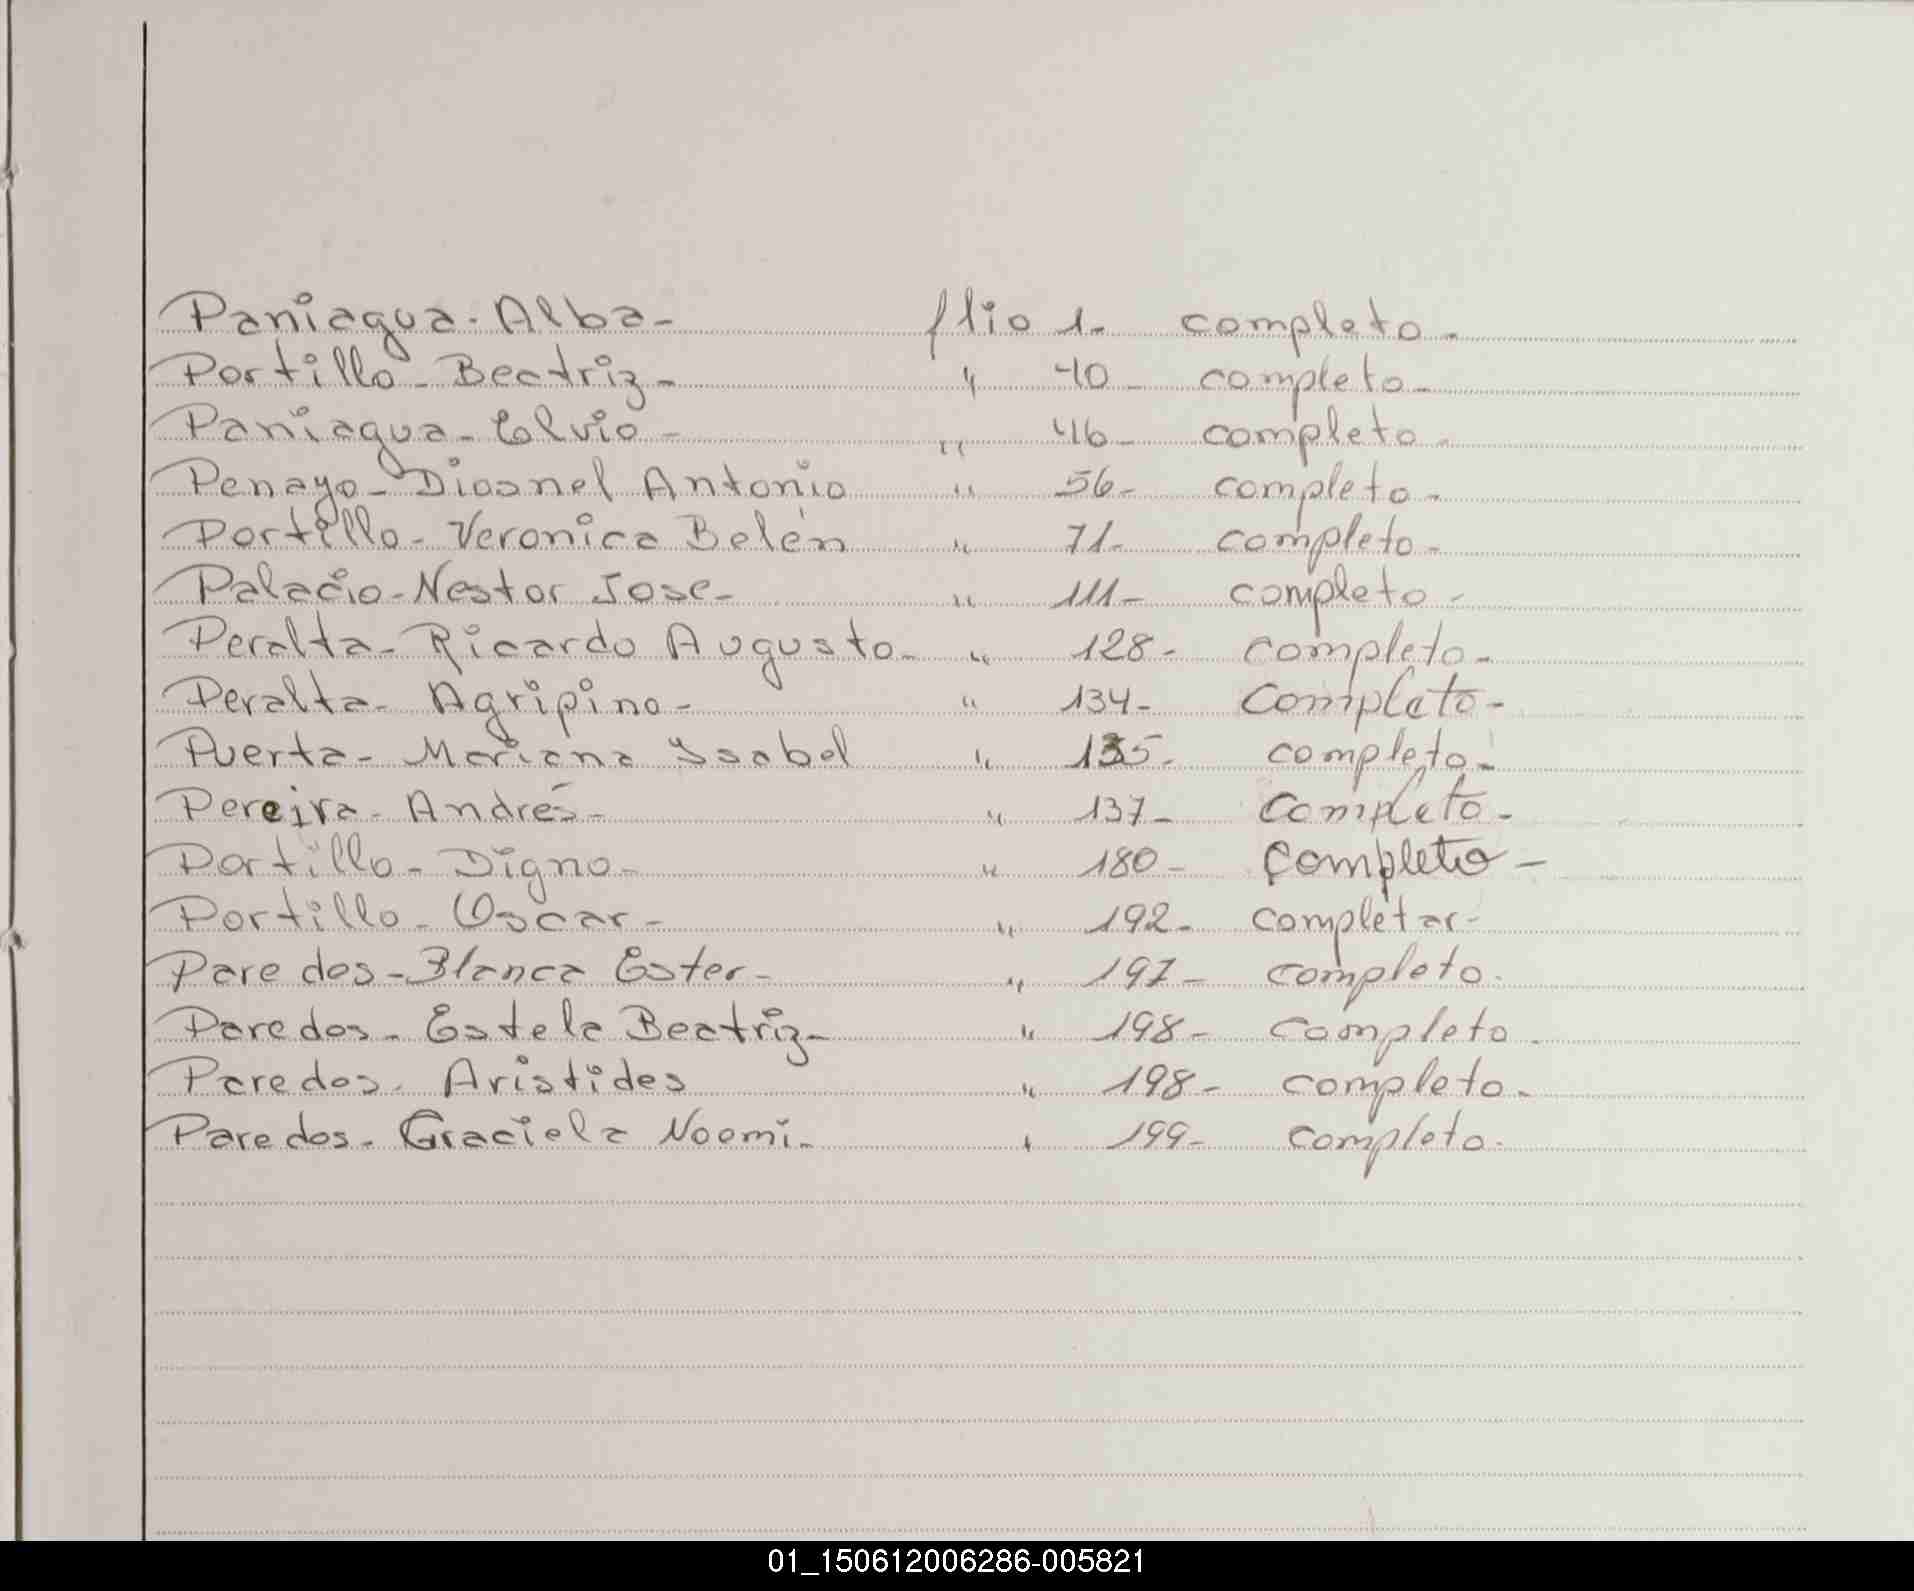 Paniagua - Alba - flio 1. completo -
Portillo - Beatriz - " 40 - completo -
Paniagua - Elvio - " 46 - completo -
Penayo - Diosnel Antonio " 56 - completo -
Portillo - Veronica Belén " 71 - completo -
Palacio - Nestor Jose - " 111 - completo -
Peralta - Ricardo Augusto - " 128 - completo -
Peralta - Agripino - " 134 - completo -
Puerta - Mariana Ysabel " 135 - completo -
Pereira - Andrés - " 137 - completo -
Portillo - Digno - " 180 - completo -
Portillo - Oscar - " 192 - completar -
Paredes - Blanca Ester - " 197 - completo.
Paredes - Estela Beatriz - " 198 - completo.
Paredes - Aristides " 198 - completo -
Paredes - Graciela Noemi - " 199 - completo.
01_150612006286-005821